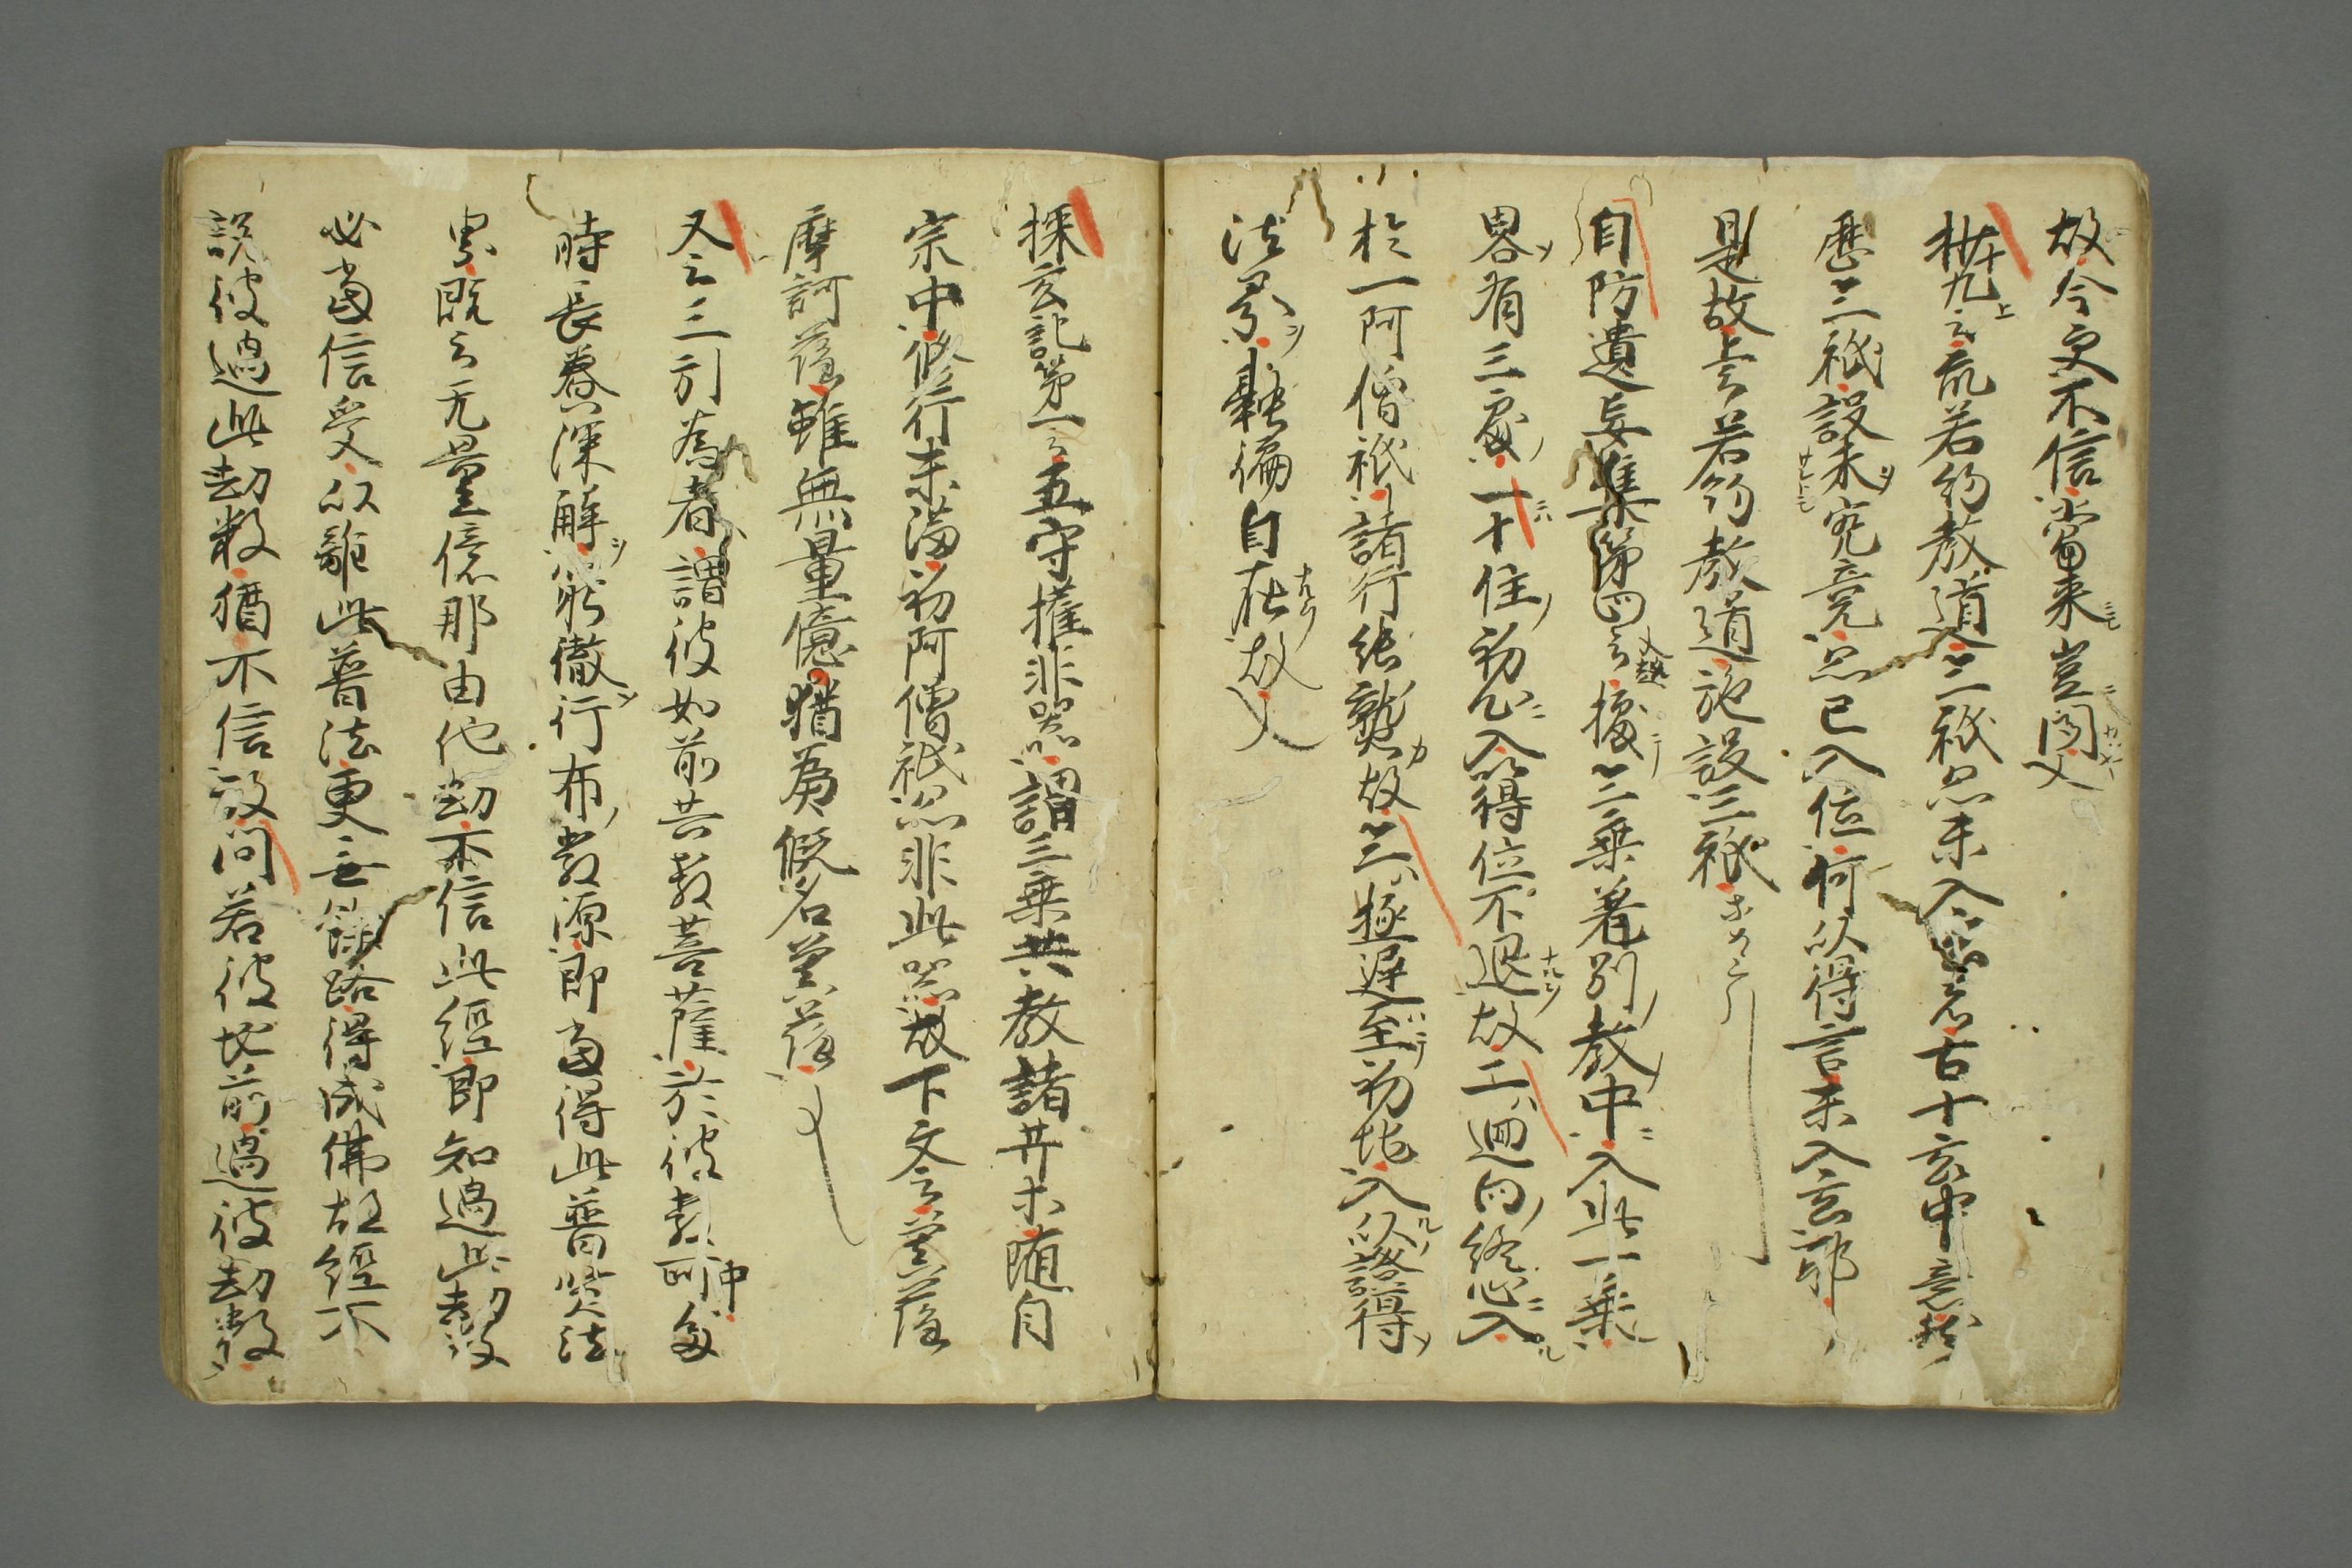 故今更不信當来豈闻文
九上云流若約教道三祇尽未入玄古十玄中意
歴三祇設未究竟必已入位何以得言未入玄郭
是故上云若約教道施設三祇
自防遺妄集第四云據三乗着別教中入此一乗
畧有三處一十住初心入以得位不退故二迴向終心入
於一阿僧祇諸行純熟故三極遅至初地入以證得
法界融徧自在故文
探玄記第一云五守權非器謂三乗共教諸井未随自
宗中修行未満初阿僧祇必非此器故下文云菩薩
摩訶薩雖無量億猶為假名菩薩
又云三引為者謂彼如前共教菩薩於彼教中所多
時長養深解窮徹行布教源即當得此普賢法
界既云无量億那由他劫不信此経即知過此劫数
必當信受以離此普法更无餘路得成佛故経不
説彼過此劫数猶不信故問若彼地前過彼劫数